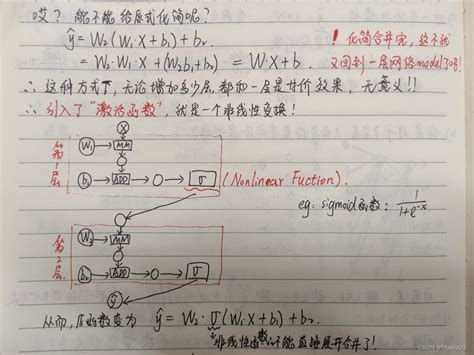 哎? 能不能给原式化简呢?
ŷ = W₂(W₁·X+b₁)+b₂
= W₂·W₁·X+(W₂b₁+b₂) = W·X+b
! 化简合并完, 这不就
又回到一层网络model了吗!
∴ 这种方式下, 无论增加多少层, 都和一层是等价效果, 无意义!!
∴ 引入了"激活函数", 就是个非线性变换!
第1层
X
W₁
MM
b₁
ADD
σ
(Nonlinear Fuction).
eg: sigmoid函数: 1/(1+e⁻ˣ)
第2层
W₂
MM
b₂
ADD
σ
ŷ
从而, 原函数变为 ŷ = W₂·σ(W₁X+b₁)+b₂
非线性函数 不能直接展开合并了!